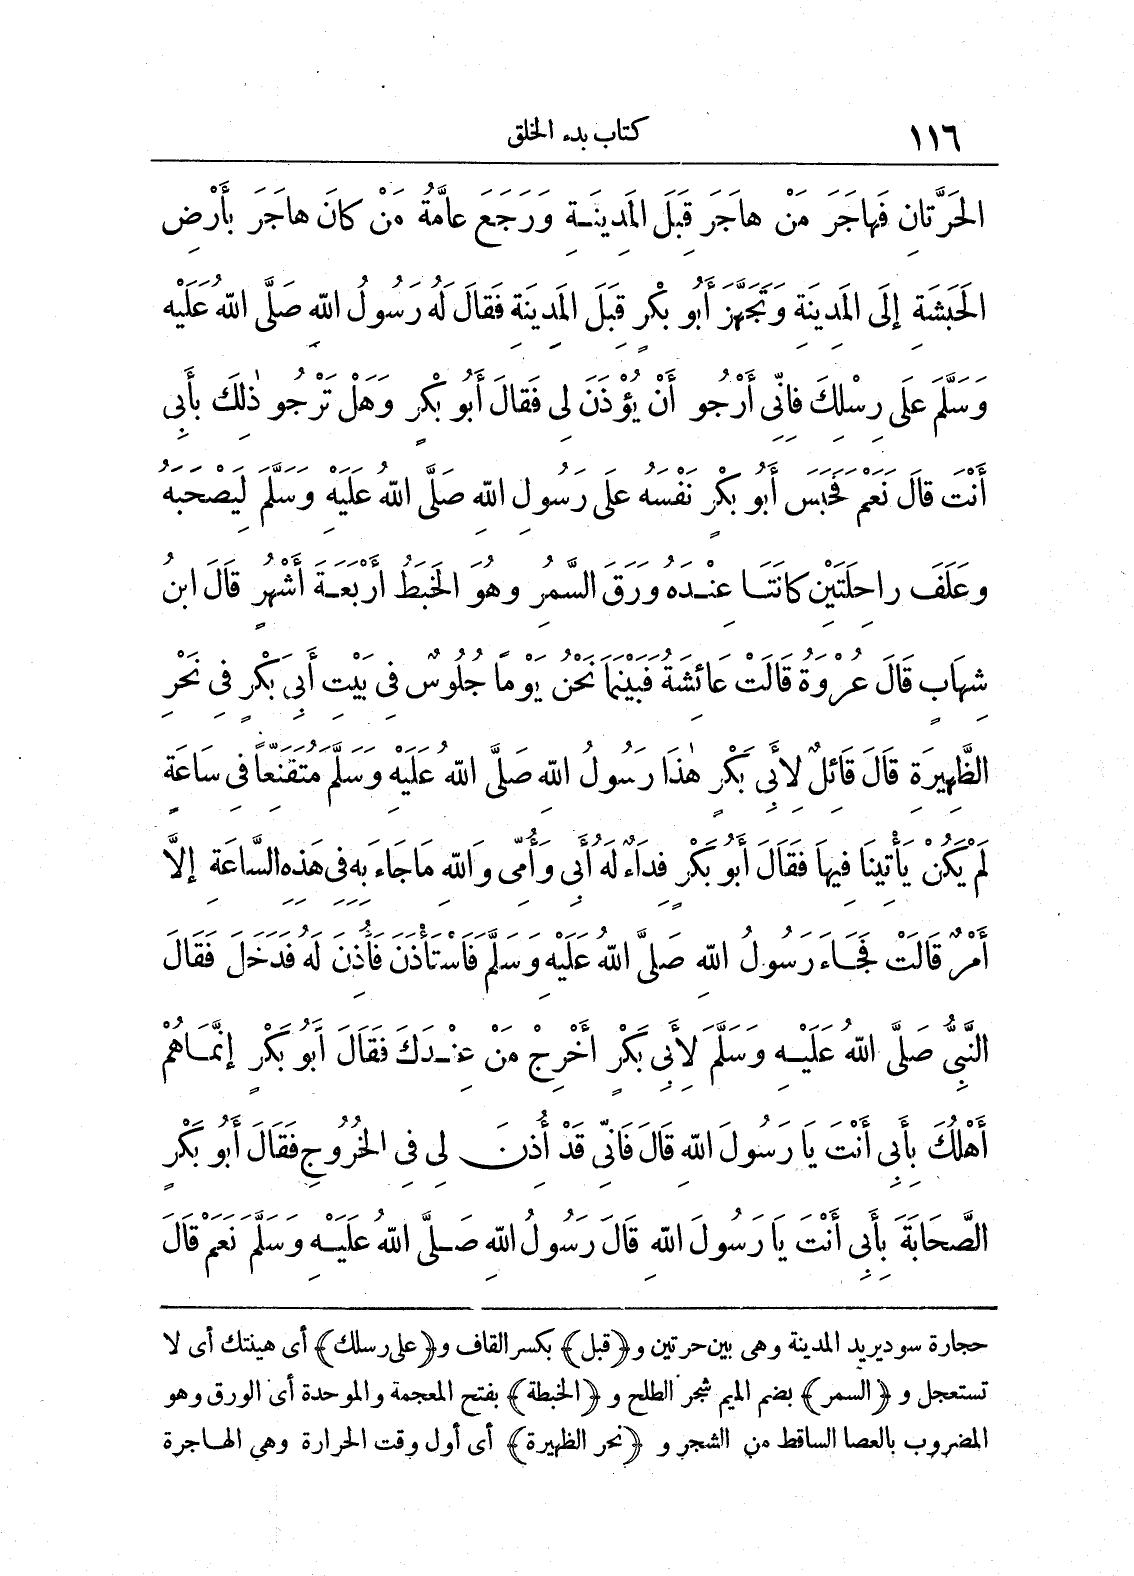 ١١٦
كتاب بدء الخلق
الحَرَّتانِ فَهاجَرَ مَنْ هاجَرَ قِبَلَ المَدِينَةِ وَرَجَعَ عامَّةُ مَنْ كانَ هاجَرَ بِأَرْضِ
الحَبَشَةِ إِلَى المَدِينَةِ وَتَجَهَّزَ أَبُو بَكْرٍ قِبَلَ المَدِينَةِ فَقالَ لَهُ رَسُولُ اللهِ صَلَّى اللهُ عَلَيْهِ
وَسَلَّمَ عَلَى رِسْلِكَ فانِّي أَرْجُو أَنْ يُؤْذَنَ لِي فَقالَ أَبُو بَكْرٍ وَهَلْ تَرْجُو ذٰلِكَ بِأَبِي
أَنْتَ قالَ نَعَمْ فَحَبَسَ أَبُو بَكْرٍ نَفْسَهُ عَلى رَسُولِ اللهِ صَلَّى اللهُ عَلَيْهِ وَسَلَّمَ لِيَصْحَبَهُ
وعَلَفَ راحِلَتَيْنِ كانَتَا عِنْدَهُ وَرَقَ السَّمُرِ وهُوَ الخَبَطُ أَرْبَعَةَ أَشْهُرٍ قالَ ابنُ
شِهَابٍ قَالَ عُرْوَةُ قَالَتْ عَائِشَةُ فَبَيْنَمَا نَحْنُ يَوْمًا جُلُوسٌ فِي بَيْتِ أَبِي بَكْرٍ فِي نَحْرِ
الظَّهِيرَةِ قَالَ قَائِلٌ لِأَبِي بَكْرٍ هٰذَا رَسُولُ اللهِ صَلَّى اللهُ عَلَيْهِ وَسَلَّمَ مُتَقَنِّعاً فِي سَاعَةٍ
لَمْ يَكُنْ يَأْتِينَا فِيهَا فَقَالَ أَبُو بَكْرٍ فِدَاءٌ لَهُ أَبِي وَأُمِّي وَاللهِ مَا جَاءَ بِهِ فِي هَذِهِ السَّاعَةِ إِلَّا
أَمْرٌ قَالَتْ فَجَاءَ رَسُولُ اللهِ صَلَّى اللهُ عَلَيْهِ وَسَلَّمَ فَاسْتَأْذَنَ فَأُذِنَ لَهُ فَدَخَلَ فَقَالَ
النَّبِيُّ صَلَّى اللهُ عَلَيْهِ وَسَلَّمَ لِأَبِي بَكْرٍ أَخْرِجْ مَنْ عِنْدَكَ فَقَالَ أَبُو بَكْرٍ إِنَّمَا هُمْ
أَهْلُكَ بِأَبِي أَنْتَ يَا رَسُولَ اللهِ قَالَ فَانِّي قَدْ أُذِنَ لِي فِي الخُرُوجِ فَقَالَ أَبُو بَكْرٍ
الصَّحَابَةَ بِأَبِي أَنْتَ يَا رَسُولَ اللهِ قَالَ رَسُولُ اللهِ صَلَّى اللهُ عَلَيْهِ وَسَلَّمَ نَعَمْ قَالَ
حجارة سود يريد المدينة وهي بين حرتين و﴿قبل﴾ بكسر القاف و﴿على رسلك﴾ أى هينتك أى لا
تستعجل و ﴿السمر﴾ بضم الميم شجر الطلح و ﴿الخبطة﴾ بفتح المعجمة والموحدة أى الورق وهو
المضروب بالعصا الساقط من الشجر و ﴿نحر الظهيرة﴾ أى أول وقت الحرارة وهي الهاجرة